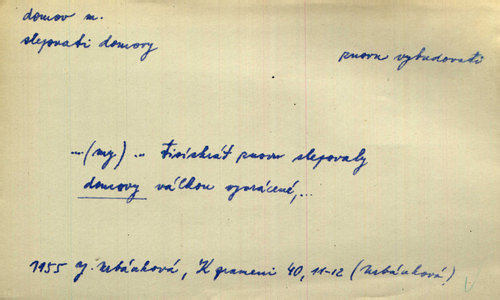 domov m.
slepovati domovy
znovu vybudovati
...(my)... tisíckrát znovu slepovaly
domovy válkou vyvrácené,...
1955 J. Urbánková, K prameni 40, 11-12 (Urbánková)